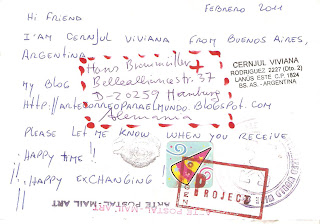 FEBRERO 2011
Hi FRIEND
I'AM CERNJUL VIVIANA FROM BUENOS AIRES,
ARGENTINA
CERNJUL VIVIANA
RODRIGUEZ 2227 (Dto. 2)
LANUS ESTE C.P. 1824
BS. AS. - ARGENTINA
Hans Braumüller
Bellealliancestr. 37
D-20259 Hamburg
Alemania
MY BLOG
Http://ARTECORREOPARAELMUNDO.BLOGSPOT.COM
PLEASE LET ME KNOW WHEN YOU RECEIVE
¡¡HAPPY TIME!!
¡¡HAPPY EXCHANGING
PROJECT
ARTE POSTAL·MAIL ART